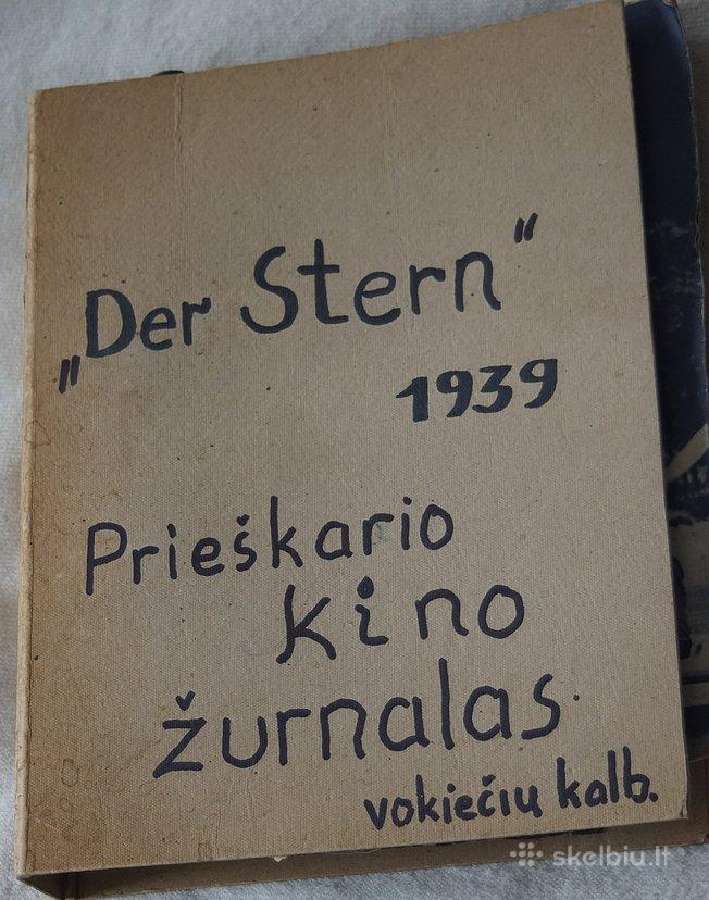 „Der Stern“
1939
Prieškario
kino
žurnalas.
vokiečių kalb.
skelbiu.lt